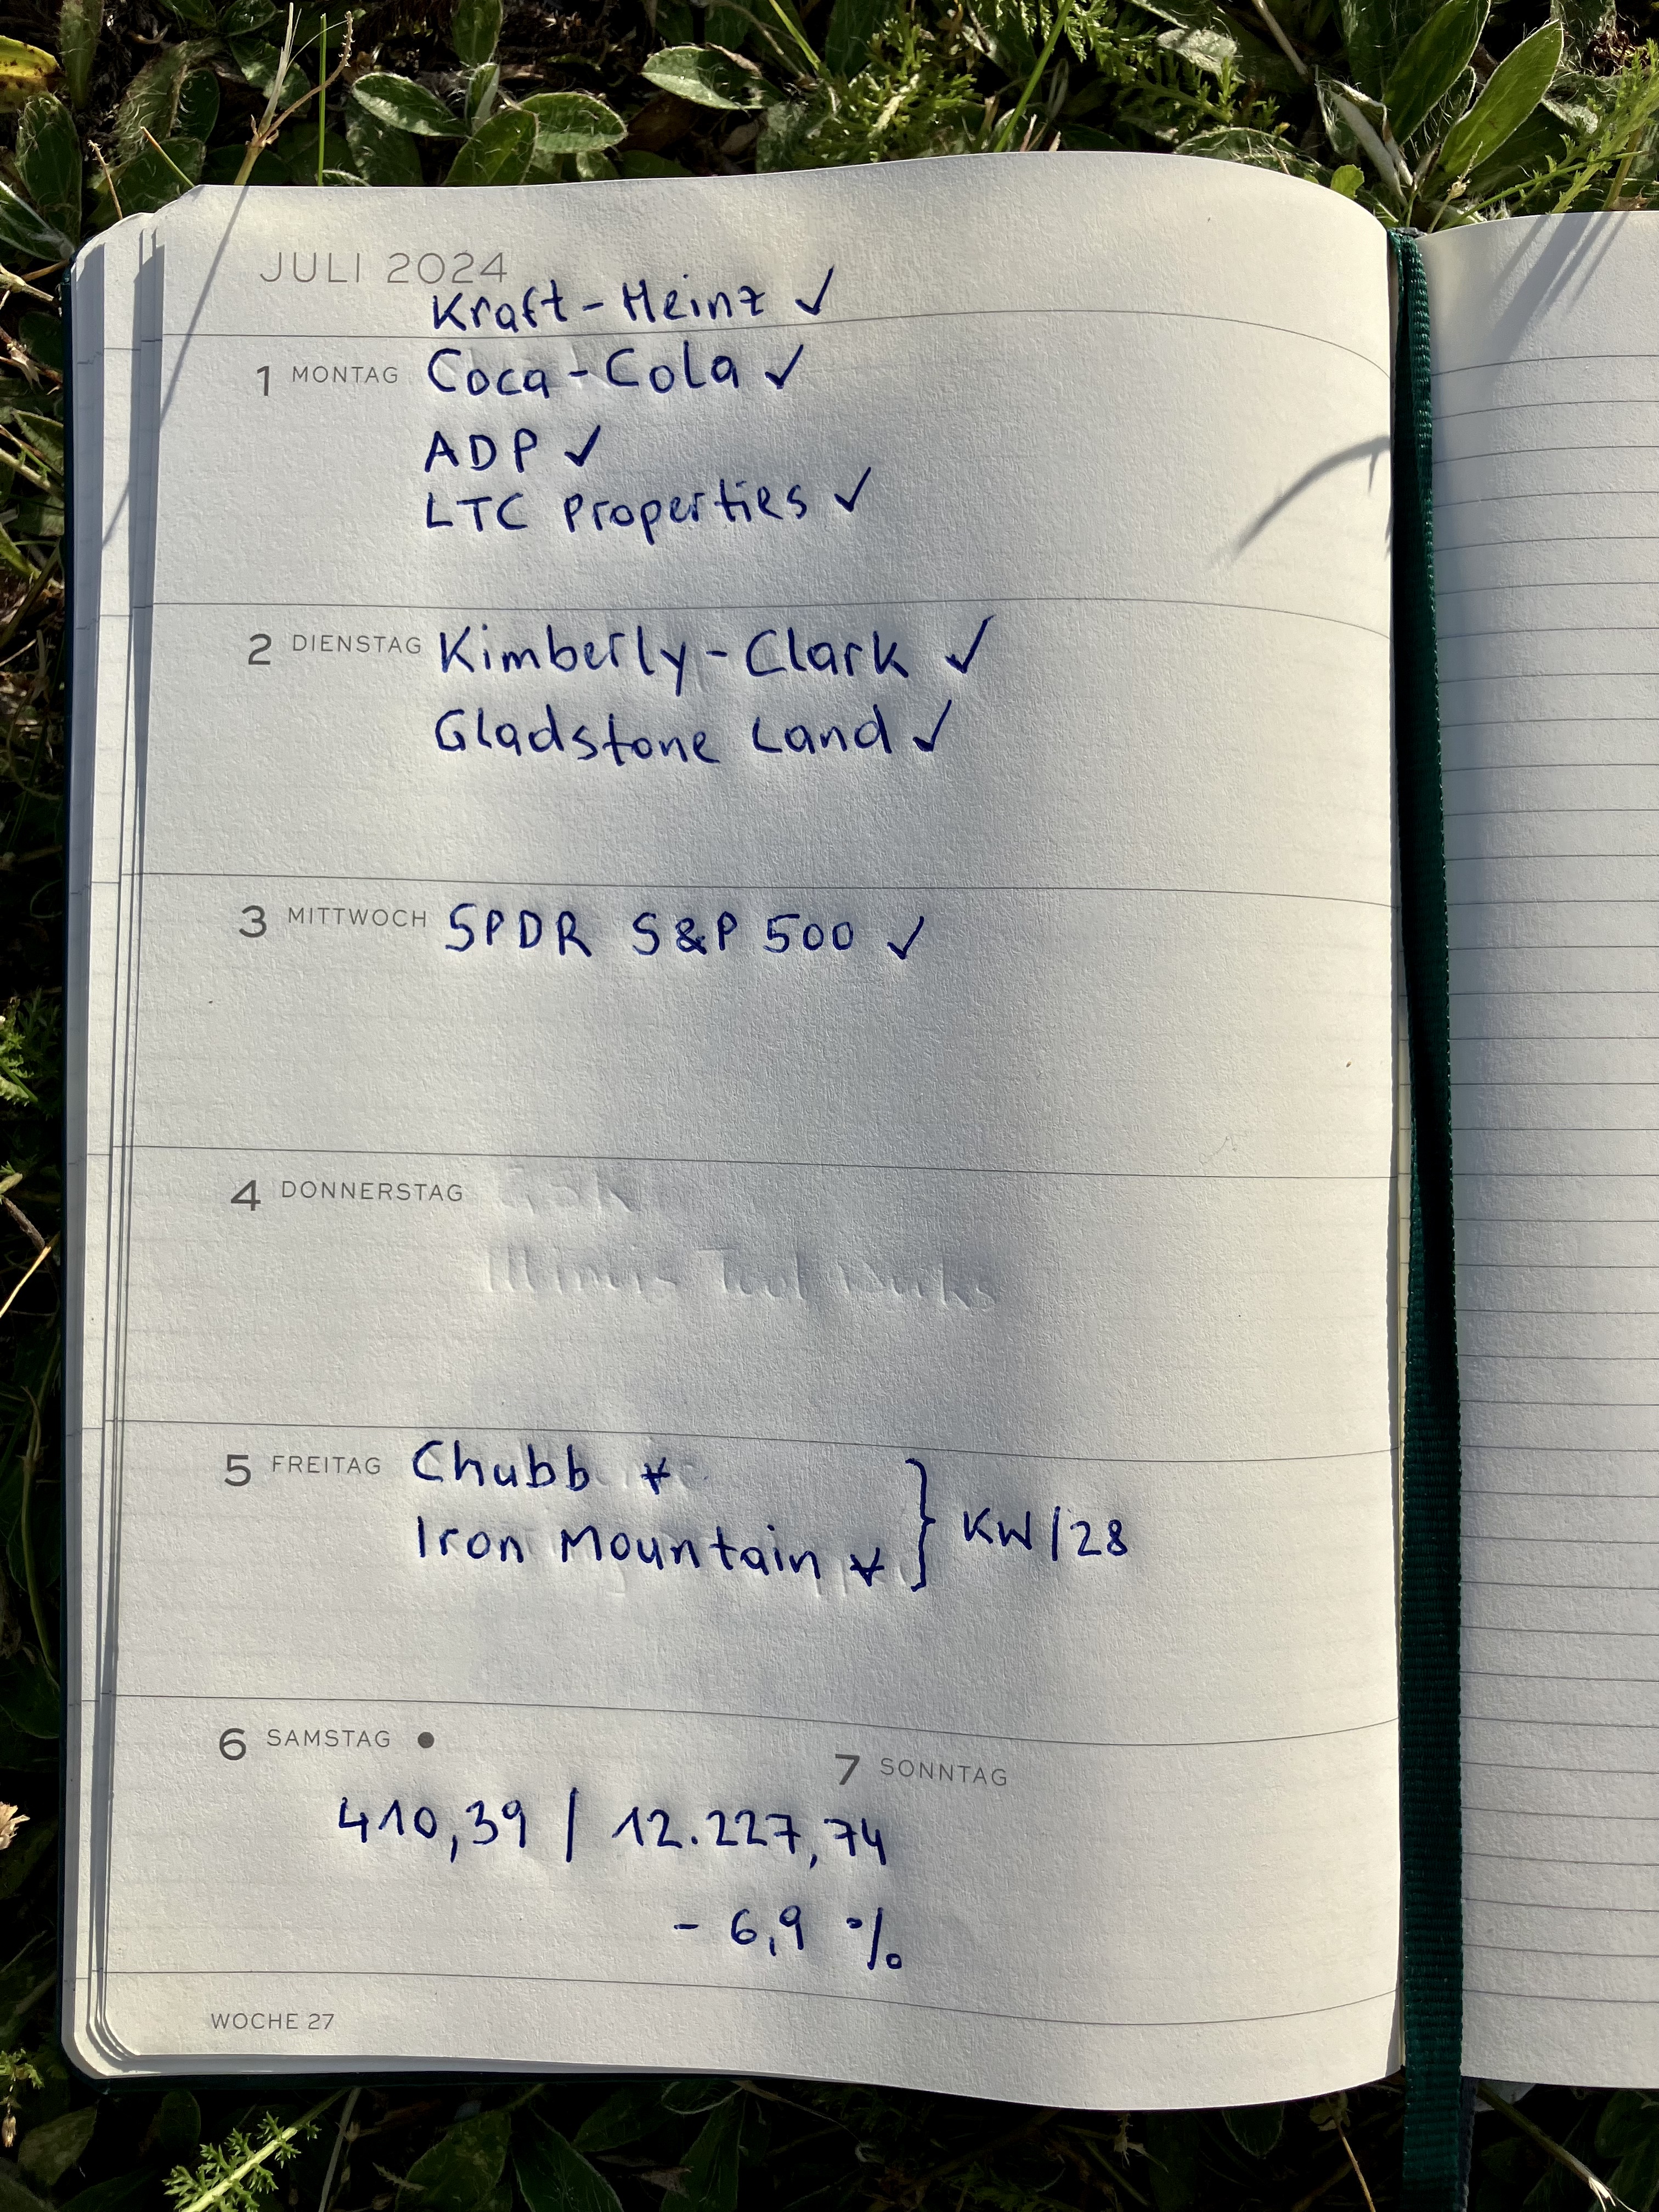 JULI 2024
Kraft-Heinz ✓
1 MONTAG Coca-Cola ✓
ADP ✓
LTC Properties ✓
2 DIENSTAG Kimberly-Clark ✓
Gladstone Land ✓
3 MITTWOCH SPDR S&P 500 ✓
4 DONNERSTAG
Illinois Tool Works
5 FREITAG Chubb
Iron Mountain } KW/28
6 SAMSTAG ●
7 SONNTAG
410,39 / 12.227,74
- 6,9 %
WOCHE 27